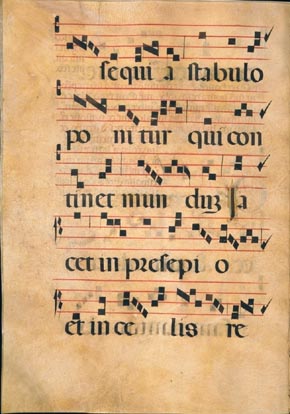 sequi a stabulo
po ni tur qui con
tinet mun duȝ Ia
cet in presepi o
et in ce lis re